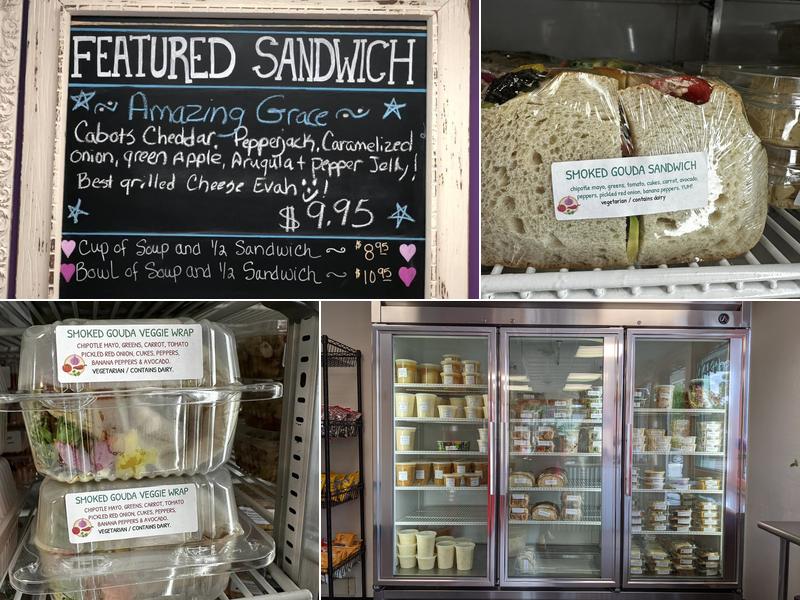 FEATURED SANDWICH
Amazing Grace
Cabots Cheddar. Pepperjack, Caramelized
onion, green Apple, Arugula + pepper Jelly,!
Best grilled Cheese Evah!
$9.95
Cup of Soup and ½ Sandwich ~ $8.95
Bowl of Soup and ½ Sandwich ~ $10.95
SMOKED GOUDA SANDWICH
chipotle mayo, greens, tomato, cukes, carrot, avocado,
peppers, pickled red onion, banana peppers. YUM!
vegetarian / contains dairy
SMOKED GOUDA VEGGIE WRAP
CHIPOTLE MAYO, GREENS, CARROT, TOMATO
PICKLED RED ONION, CUKES, PEPPERS,
BANANA PEPPERS & AVOCADO.
VEGETARIAN / CONTAINS DAIRY.
SMOKED GOUDA VEGGIE WRAP
CHIPOTLE MAYO, GREENS, CARROT, TOMATO
PICKLED RED ONION, CUKES, PEPPERS,
BANANA PEPPERS & AVOCADO.
VEGETARIAN / CONTAINS DAIRY.